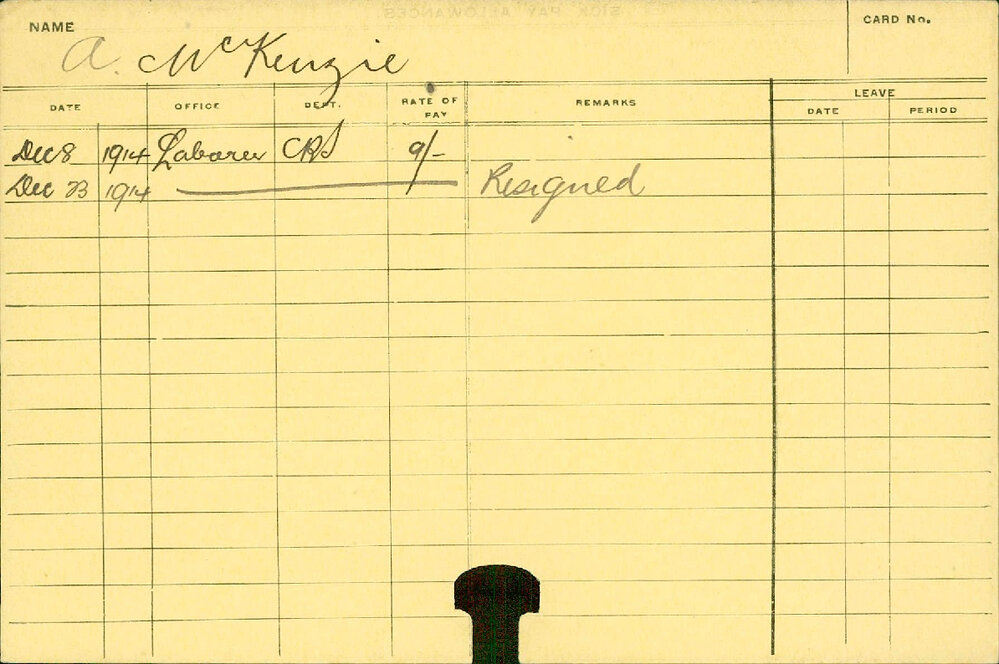 NAME A. McKenzie CARD No.
DATE OFFICE DEPT. RATE OF PAY REMARKS LEAVE DATE PERIOD
Dec 8 1914 Laborer CRS 9/-
Dec 23 1914 Resigned